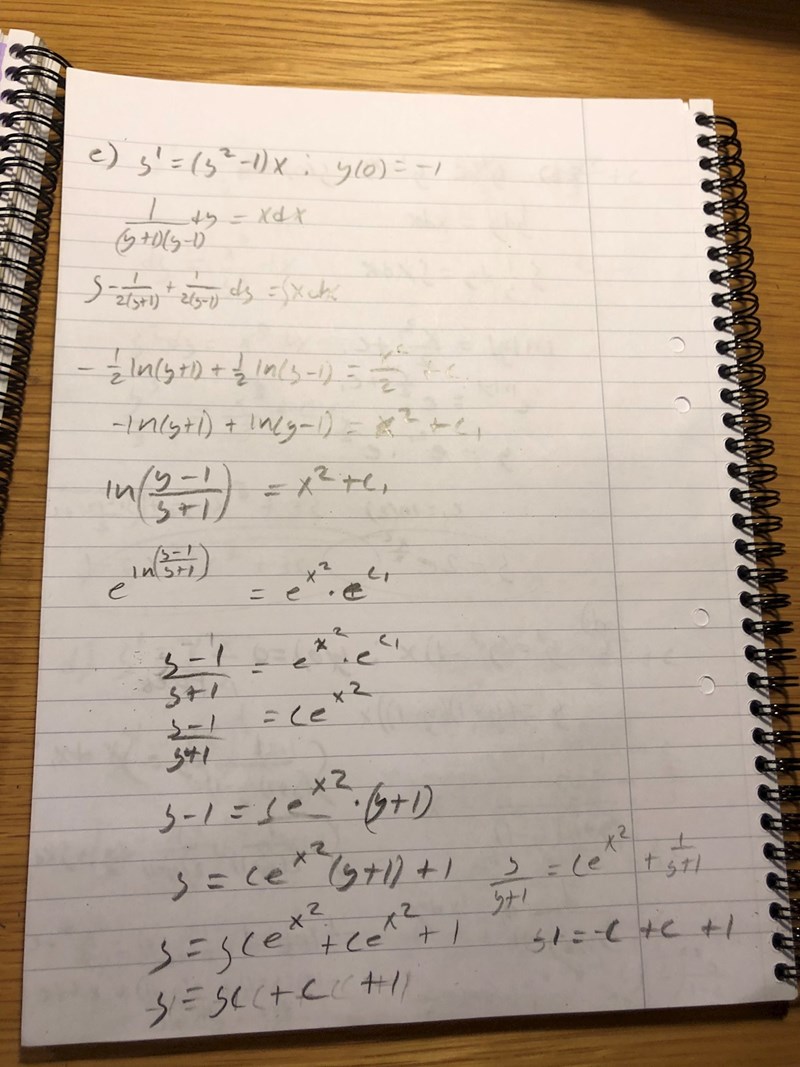 e) y' = (y² -1)x ; y(0) = -1
1/((y+1)(y-1)) dy = x dx
∫ -1/(2(y+1)) + 1/(2(y-1)) dy = ∫x dx
-1/2 ln(y+1) + 1/2 ln(y-1) = x²/2 + c
-ln(y+1) + ln(y-1) = x² + c₁
ln((y-1)/(y+1)) = x² + c₁
e^(ln((y-1)/(y+1))) = e^(x²) · e^(c₁)
(y-1)/(y+1) = e^(x²) · e^(c₁)
(y-1)/(y+1) = Ce^(x²)
y-1 = Ce^(x²) · (y+1)
y = Ce^(x²) (y+1) + 1 y/(y+1) = Ce^(x²) + 1/(y+1)
y = yCe^(x²) + Ce^(x²) + 1 -1 = -C + C + 1
y = yC + C + 1